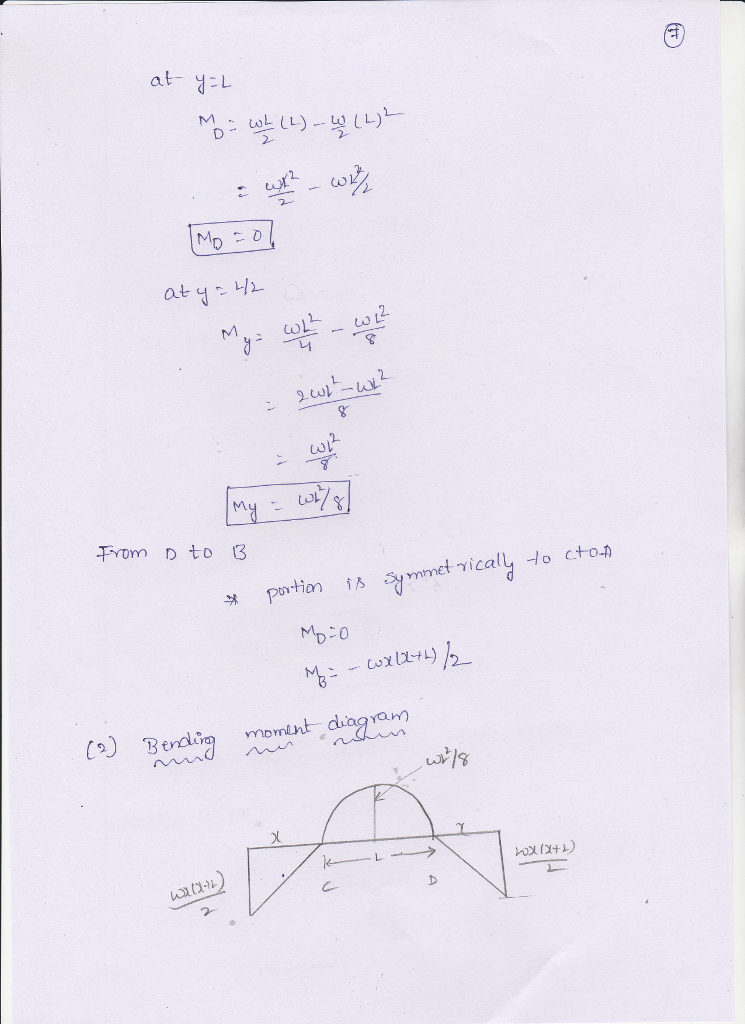 7
at y=L
M_D = ωL/2 (L) - ω/2 (L)²
= ωL²/2 - ωL²/2
M_D = 0
at y = L/2
M_y = ωL²/4 - ωL²/8
= 2ωL² - ωL²/8
= ωL²/8
My = ωL²/8
From D to B
* portion is symmetrically to C to A
M_D = 0
M_B = - ωx(x+L)/2
(2) Bending moment diagram
ωL²/8
x x
L
C D
ωx(x+L)/2
ωx(x+L)/2